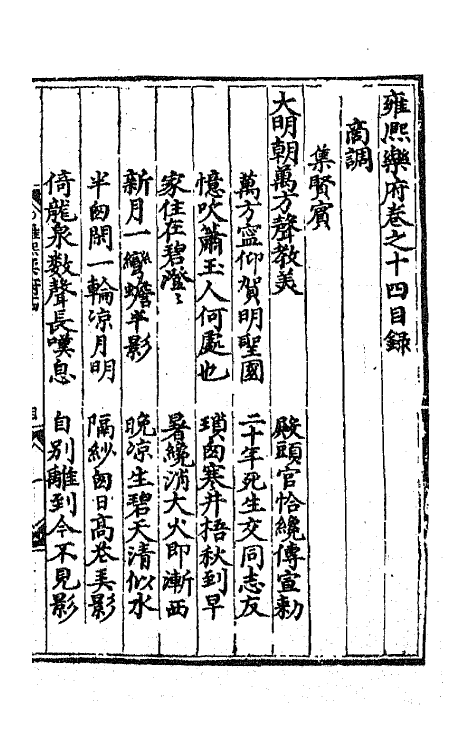 雍熙樂府卷之十四目錄
商調
集賢賔
大明朝萬方聲教美 殿頭官恰纔傳宣勑
萬方寧仰賀明聖國 二十年死生交同志友
憶吹簫玉人何處也 瑣囱寒井梧秋到早
家住在碧澄〻 暑纔消大火即漸西
新月一彎蟾半影 晚凉生碧天清似水
半囱閑一輪凉月明 隔紗囱日髙花美影
倚龍泉数聲長嘆息 自别離到今不見影